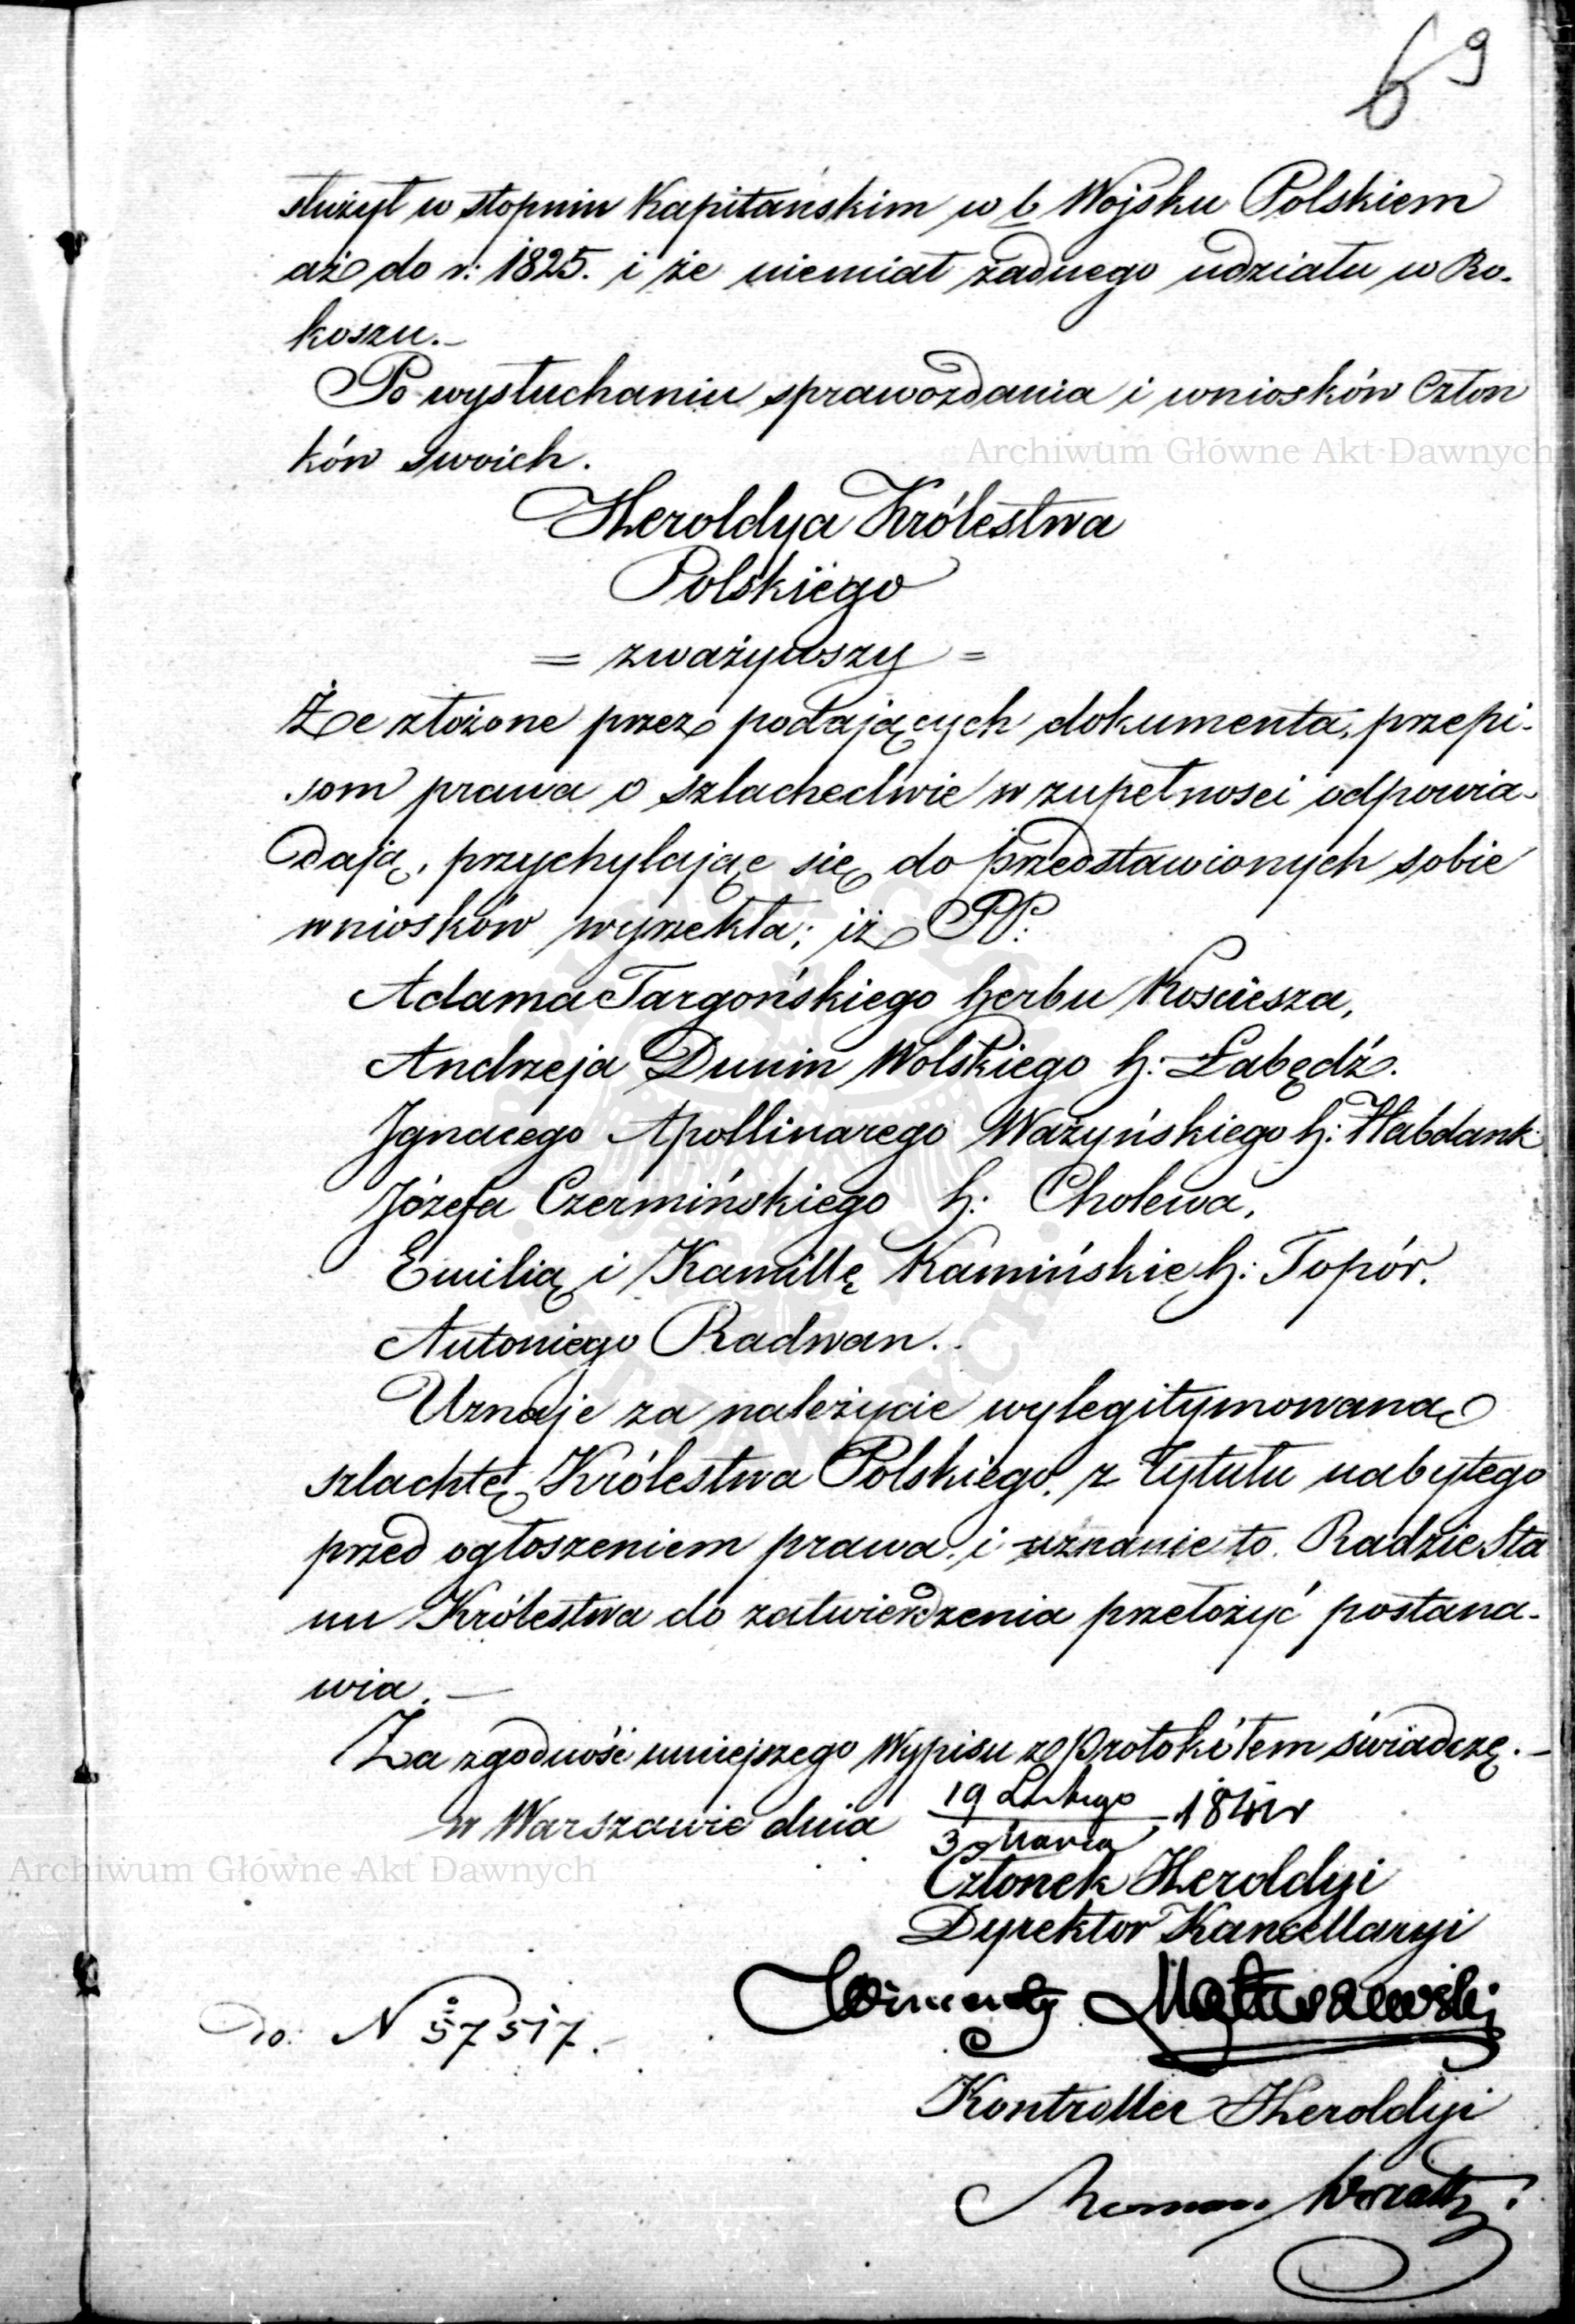 69
służył w stopniu Kapitańskim w b Wojsku Polskiem
aż do r: 1825. i że niemiał żadnego udziału w Ro-
koszu.—
Po wysłuchaniu sprawozdania i wniosków Człon
ków swoich.
Archiwum Główne Akt Dawnych
Heroldya Królestwa
Polskiego
= zważywszy =
Że złożone przez podających dokumenta, przepi-
som prawa o szlachectwie w zupełnosci odpowia-
dają, przychylając się do przedstawionych sobie
wniosków wyrzekła; iż PP:
Adama Targońskiego herbu Kościesza,
Andrzeja Dunin Wolskiego h: Łabędź.
Ignacego Apollinarego Ważyńskiego h: Habdank
Józefa Czermińskiego h: Cholewa,
Emilią i Kamillę Kamińskie h: Topór.
Antoniego Radwan.
Uznaje za należycie wylegitymowaną
szlachtę Królestwa Polskiego, z tytułu nabytego
przed ogłoszeniem prawa, i uznanie to Radzie Sta
nu Królestwa do zatwierdzenia przełożyć postana-
wia.—
Za zgodność niniejszego Wypisu z Protokółem świadczę.—
w Warszawie dnia 19 Lutego / 3 Marca
Archiwum Główne Akt Dawnych
Członek Heroldyi
Dyrektor Kancellaryi
Matuszewski
Do: N 57517.
Kontroller Heroldyi
Roman